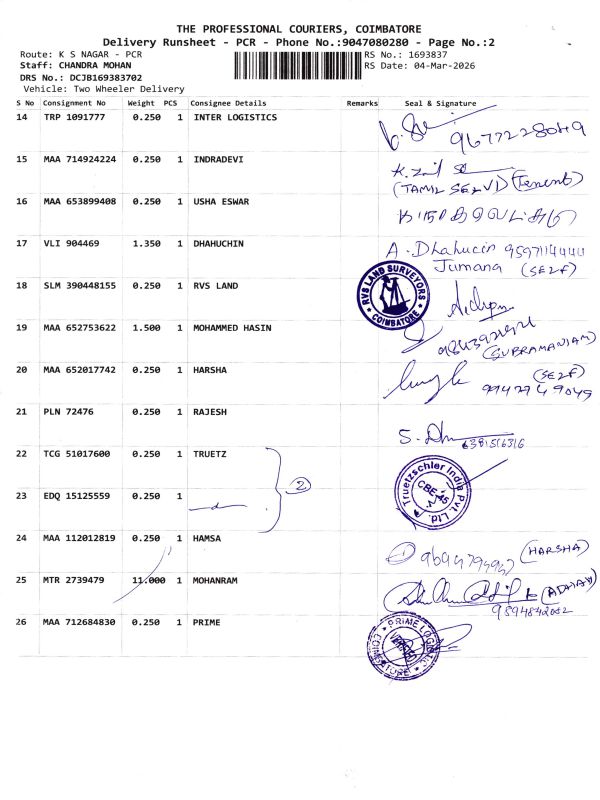 THE PROFESSIONAL COURIERS, COIMBATORE
Delivery Runsheet - PCR - Phone No.:9047080280 - Page No.:2
Route: K S NAGAR - PCR
RS No.: 1693837
Staff: CHANDRA MOHAN
RS Date: 04-Mar-2026
DRS No.: DCJB169383702
Vehicle: Two Wheeler Delivery
S No Consignment No Weight PCS Consignee Details Remarks Seal & Signature
14 TRP 1091777 0.250 1 INTER LOGISTICS
9677228049
15 MAA 714924224 0.250 1 INDRADEVI
(TAMIL SELVI) (Tenent)
16 MAA 653899408 0.250 1 USHA ESWAR
17 VLI 904469 1.350 1 DHAHUCHIN A. Dhahucin 9597114444
Jumana (SELF)
18 SLM 390448155 0.250 1 RVS LAND
RVS LAND SURVEYORS
COIMBATORE
19 MAA 652753622 1.500 1 MOHAMMED HASIN
(SUBRAMANIAM)
20 MAA 652017742 0.250 1 HARSHA (SELF)
21 PLN 72476 0.250 1 RAJESH
22 TCG 51017600 0.250 1 TRUETZ
2
Truetzschler India Pvt. Ltd.
CBE-45
23 EDQ 15125559 0.250 1
24 MAA 112012819 0.250 1 HAMSA
1 (HARSHA)
25 MTR 2739479 11.000 1 MOHANRAM
9894842002
26 MAA 712684830 0.250 1 PRIME
PRIME LOGISTIC
COIMBATORE